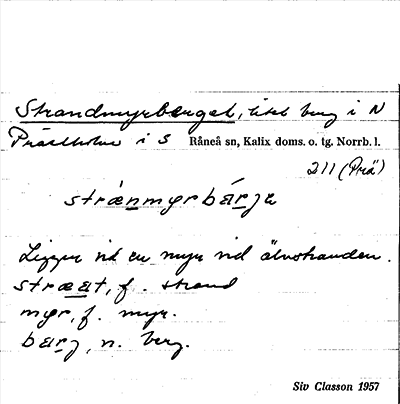 Strandmyrberget, litet berg i N
Prästholm i S Råneå sn, Kalix doms. o. tg. Norrb. l.
211 (Prä)
stránmyrbárje
Ligger vid en myr vid älvstranden.
stræat, f. strand
myr, f. myr.
barj, n. berg.
Siv Classon 1957